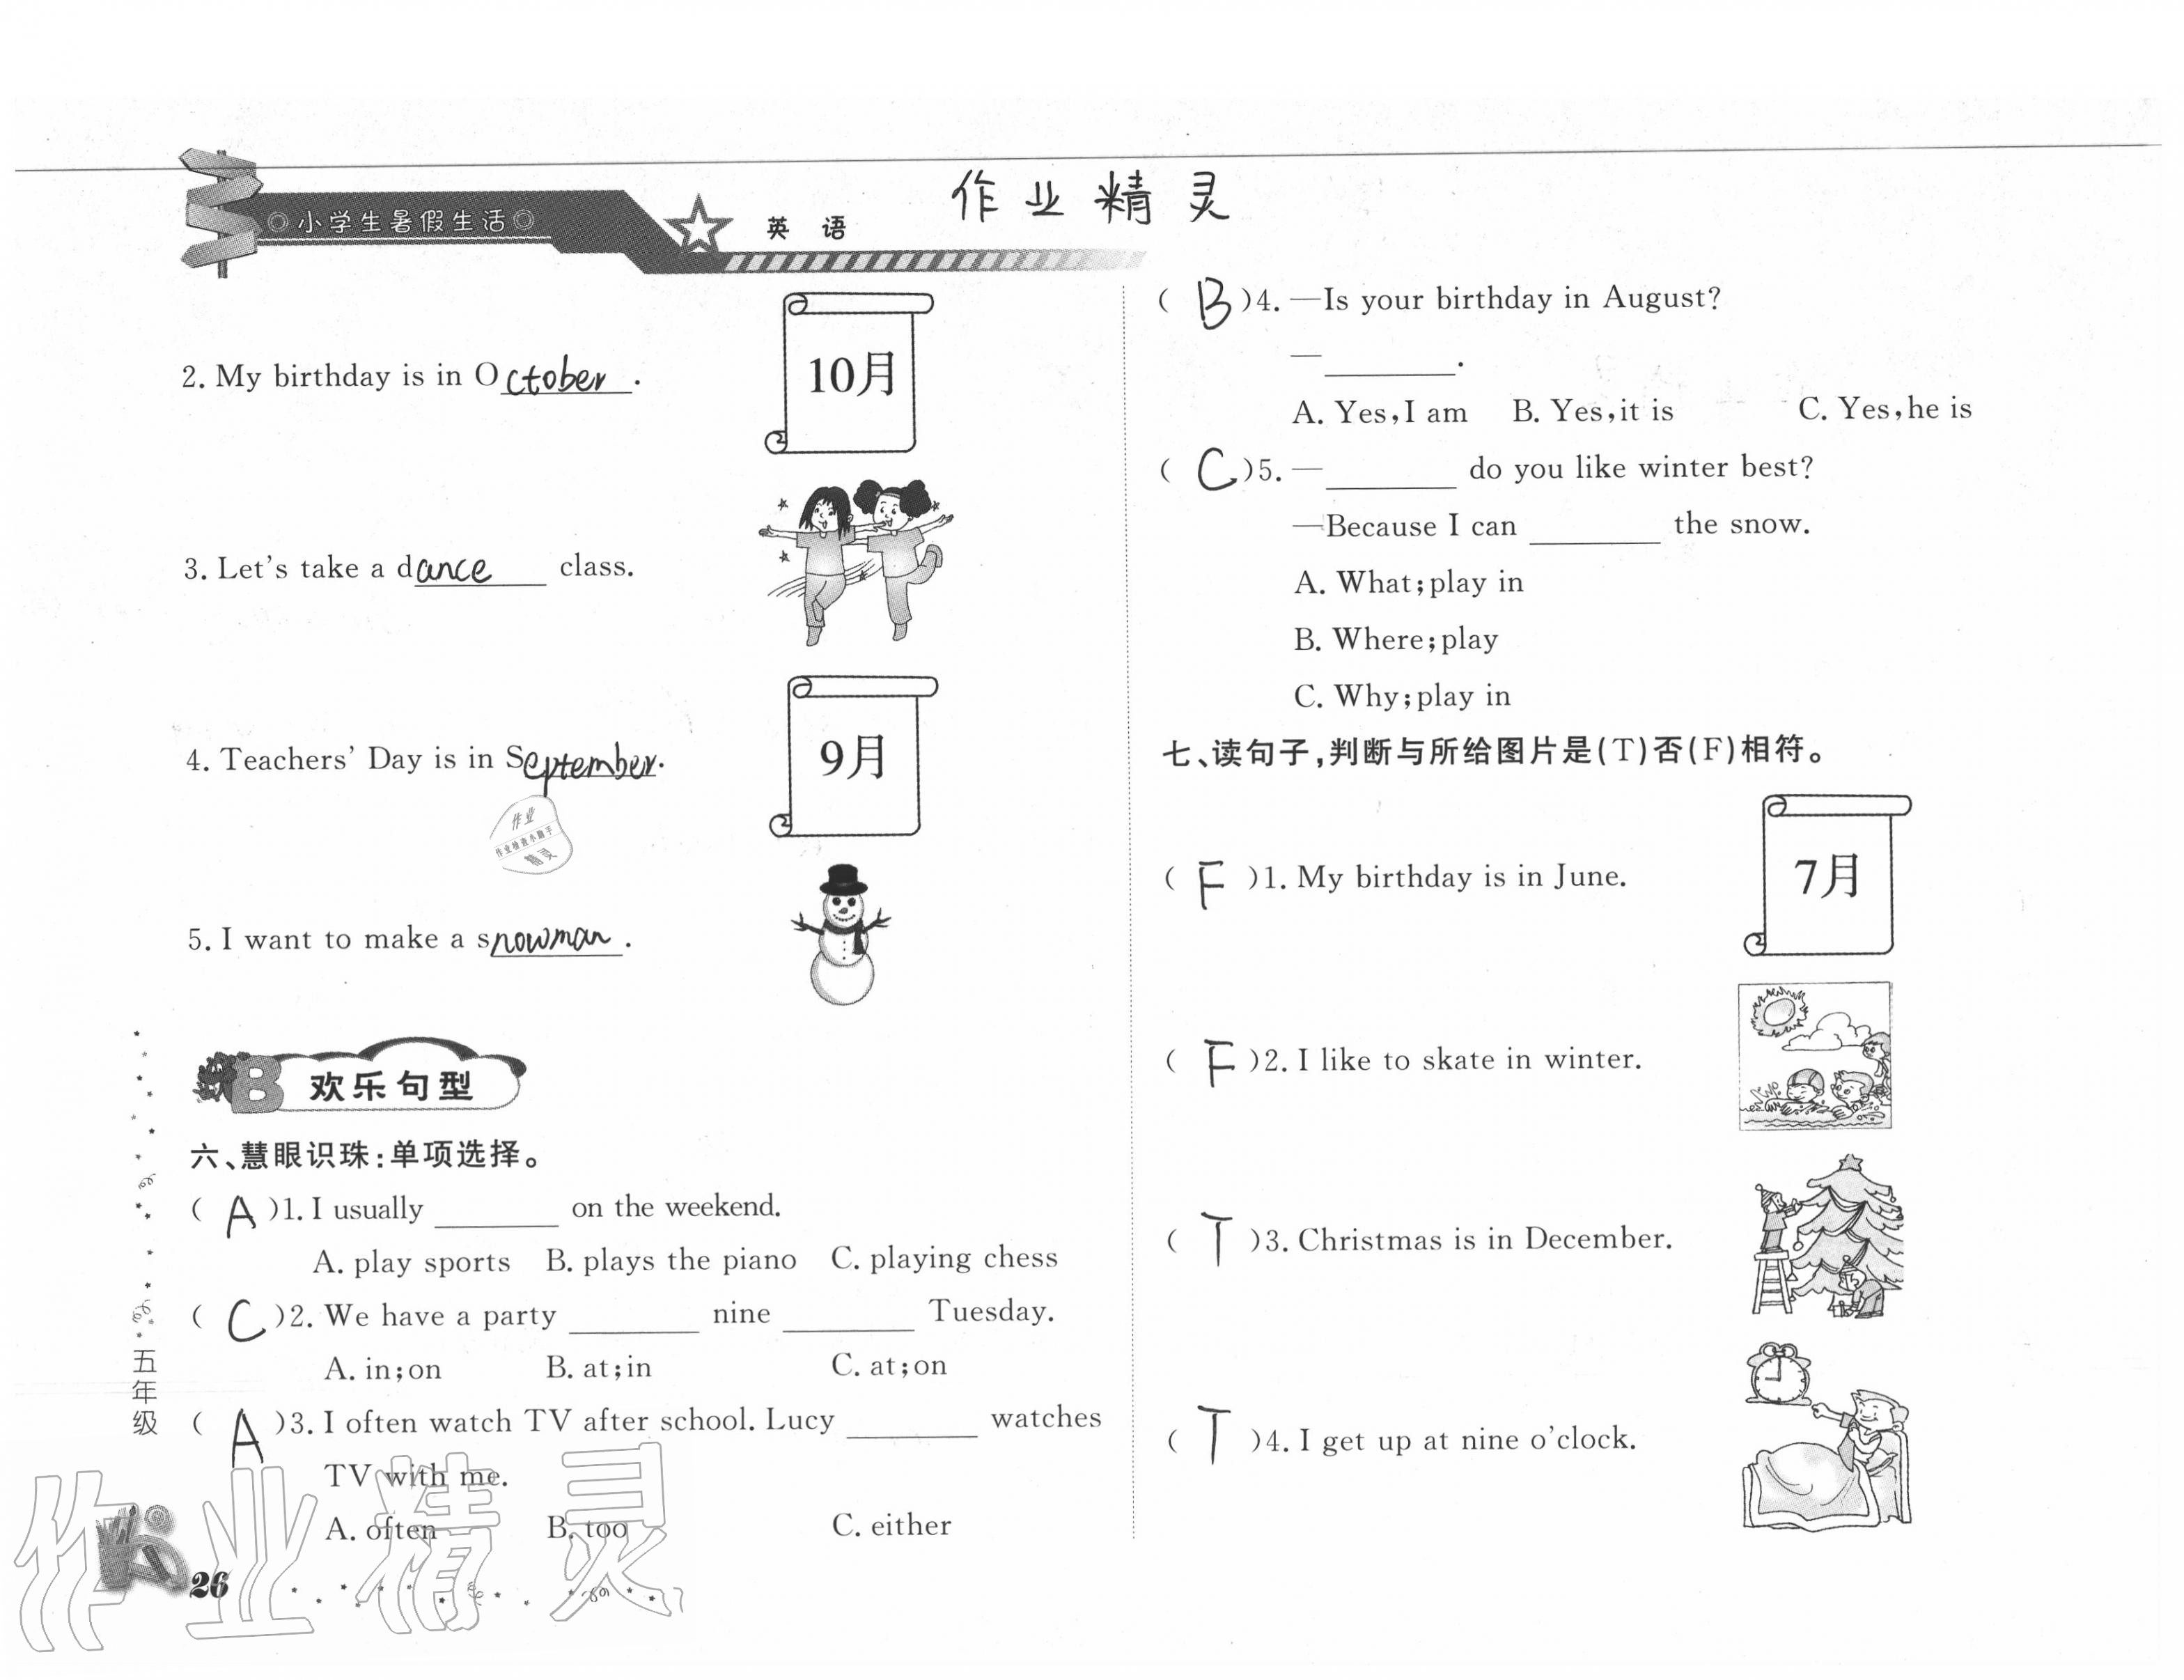 作业精灵
◎小学生暑假生活◎
英 语
2. My birthday is in October.
10月
3. Let's take a dance class.
4. Teachers' Day is in September.
9月
作业
作业检查小助手
精灵
5. I want to make a snowman.
B 欢乐句型
六、慧眼识珠:单项选择。
( A )1. I usually ______ on the weekend.
A. play sports B. plays the piano C. playing chess
( C )2. We have a party ______ nine ______ Tuesday.
A. in;on B. at;in C. at;on
( A )3. I often watch TV after school. Lucy ______ watches
TV with me.
A. often B. too C. either
( B )4. —Is your birthday in August?
— ______.
A. Yes,I am B. Yes,it is C. Yes,he is
( C )5. — ______ do you like winter best?
—Because I can ______ the snow.
A. What;play in
B. Where;play
C. Why;play in
七、读句子,判断与所给图片是(T)否(F)相符。
( F )1. My birthday is in June.
7月
( F )2. I like to skate in winter.
( T )3. Christmas is in December.
( T )4. I get up at nine o'clock.
五年级
26
作业精灵